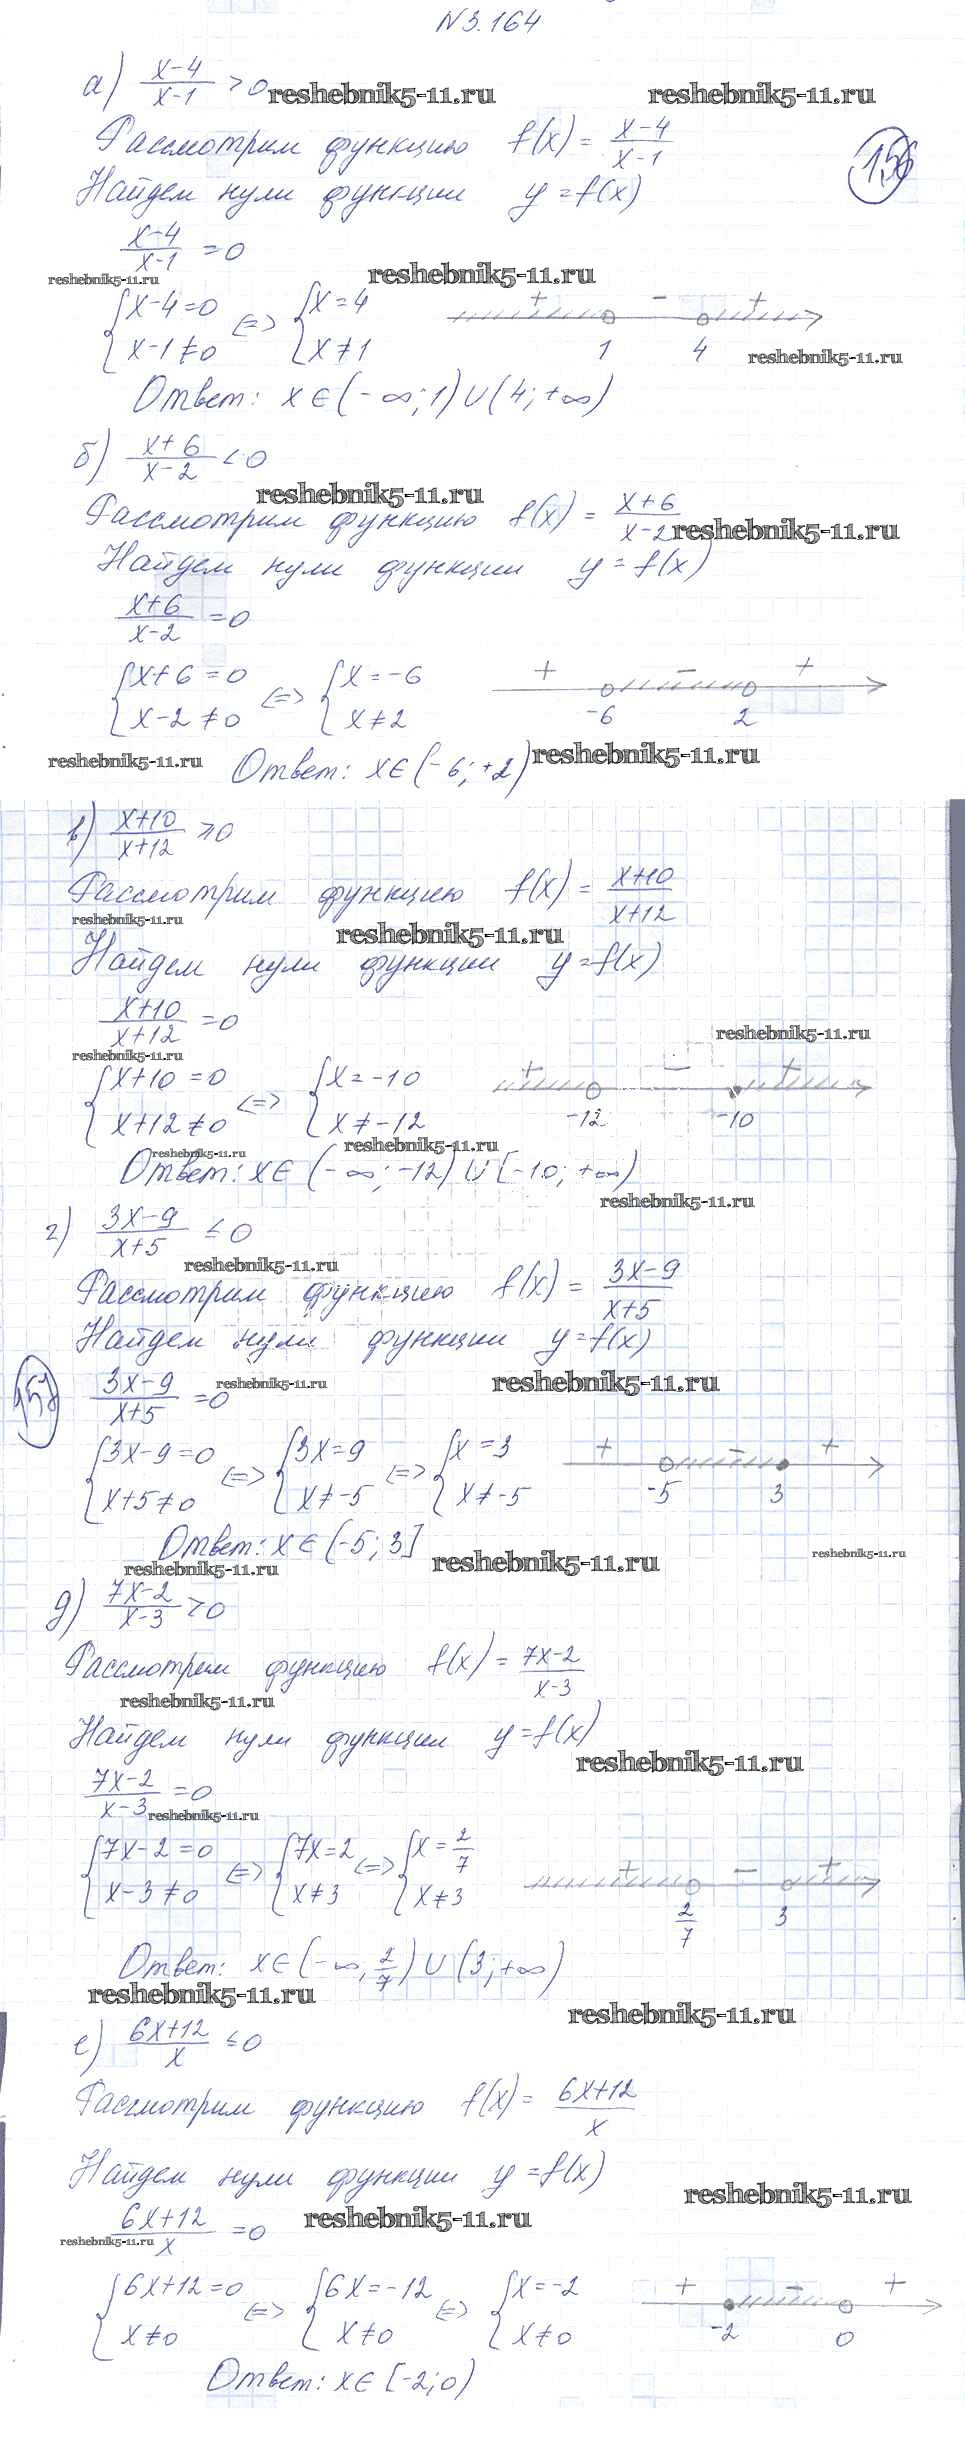 N 3.164
а) (x-4)/(x-1) > 0 reshebnik5-11.ru reshebnik5-11.ru
Рассмотрим функцию f(x) = (x-4)/(x-1)
156
Найдем нули функции y = f(x)
(x-4)/(x-1) = 0
reshebnik5-11.ru reshebnik5-11.ru
{x-4=0 <=> {x=4 + - +
{x-1≠0 {x≠1 1 4 reshebnik5-11.ru
Ответ: x∈(-∞; 1)∪(4; +∞)
б) (x+6)/(x-2) < 0
reshebnik5-11.ru
Рассмотрим функцию f(x) = (x+6)/(x-2) reshebnik5-11.ru
Найдем нули функции y = f(x)
(x+6)/(x-2) = 0
{x+6=0 <=> {x=-6 + - +
{x-2≠0 {x≠2 -6 2
reshebnik5-11.ru Ответ: x∈(-6; +2) reshebnik5-11.ru
в) (x+10)/(x+12) ≥ 0
Рассмотрим функцию f(x) = (x+10)/(x+12)
reshebnik5-11.ru reshebnik5-11.ru
Найдем нули функции y = f(x)
(x+10)/(x+12) = 0
reshebnik5-11.ru reshebnik5-11.ru
{x+10=0 <=> {x=-10 + - +
{x+12≠0 {x≠-12 -12 -10
reshebnik5-11.ru reshebnik5-11.ru
Ответ: x∈(-∞; -12)∪[-10; +∞)
reshebnik5-11.ru
г) (3x-9)/(x+5) ≤ 0
reshebnik5-11.ru
Рассмотрим функцию f(x) = (3x-9)/(x+5)
Найдем нули функции y = f(x)
(3x-9)/(x+5) = 0 reshebnik5-11.ru reshebnik5-11.ru
{3x-9=0 <=> {3x=9 <=> {x=3 + - +
{x+5≠0 {x≠-5 {x≠-5 -5 3
Ответ: x∈(-5; 3]
reshebnik5-11.ru reshebnik5-11.ru reshebnik5-11.ru
д) (7x-2)/(x-3) > 0
Рассмотрим функцию f(x) = (7x-2)/(x-3)
reshebnik5-11.ru
Найдем нули функции y = f(x)
reshebnik5-11.ru
(7x-2)/(x-3) = 0
reshebnik5-11.ru
{7x-2=0 <=> {7x=2 <=> {x=2/7 + - +
{x-3≠0 {x≠3 {x≠3 2/7 3
Ответ: x∈(-∞, 2/7)∪(3; +∞)
reshebnik5-11.ru reshebnik5-11.ru
е) (6x+12)/x ≤ 0
Рассмотрим функцию f(x) = (6x+12)/x
Найдем нули функции y = f(x)
reshebnik5-11.ru
(6x+12)/x = 0 reshebnik5-11.ru
reshebnik5-11.ru
{6x+12=0 <=> {6x=-12 <=> {x=-2 + - +
{x≠0 {x≠0 {x≠0 -2 0
Ответ: x∈[-2; 0)